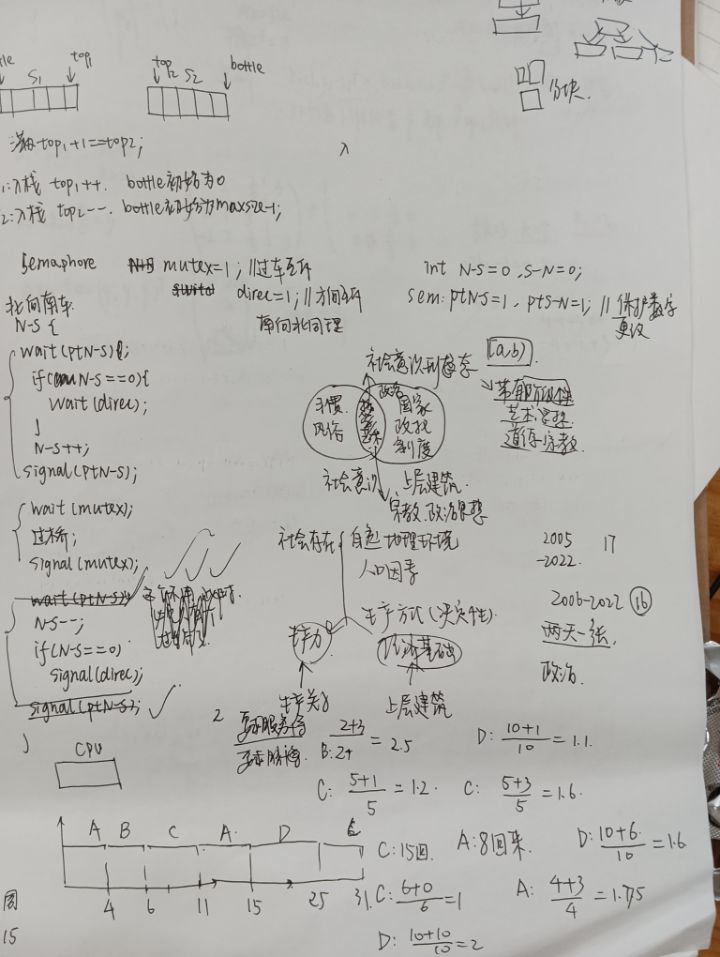 tle S1 top1 top2 S2 bottle
分块.
满 top1+1==top2;
1:入栈 top1++. bottle初始为0
2:入栈 top2--. bottle初始为maxsize-1;
semaphore mutex=1; //过车互斥
direc=1; //方向互斥
南向北同理
int N-S=0, S-N=0;
sem: ptN-S=1, ptS-N=1; // 保护数字
更改
北向南车.
N-S {
wait(ptN-S);
if(N-S==0){
wait(direc);
}
N-S++;
signal(ptN-S);
wait(mutex);
过桥;
signal(mutex);
wait(ptN-S);
N-S--;
if(N-S==0)
signal(direc);
signal(ptN-S);
}
[a,b)
社会意识形态
习惯
风俗
政治
国家
政权
制度
艺术
道德 宗教
社会意识 上层建筑.
宗教.政治思想
社会存在 自然地理环境
人口因素
生产方式(决定性)
生产力 经济基础
生产关系 上层建筑
2005 17
-2022.
2006-2022 16
两天一张
政治.
2
B: 2+3 / 2 = 2.5
D: 10+1 / 10 = 1.1.
C: 5+1 / 5 = 1.2. C: 5+3 / 5 = 1.6.
CPU
A B C A D C
4 6 11 15 25 31
C:15回. A:8回来. D: 10+6 / 10 = 1.6
C: 6+0 / 6 = 1 A: 4+3 / 4 = 1.75
D: 10+10 / 10 = 2
周
15